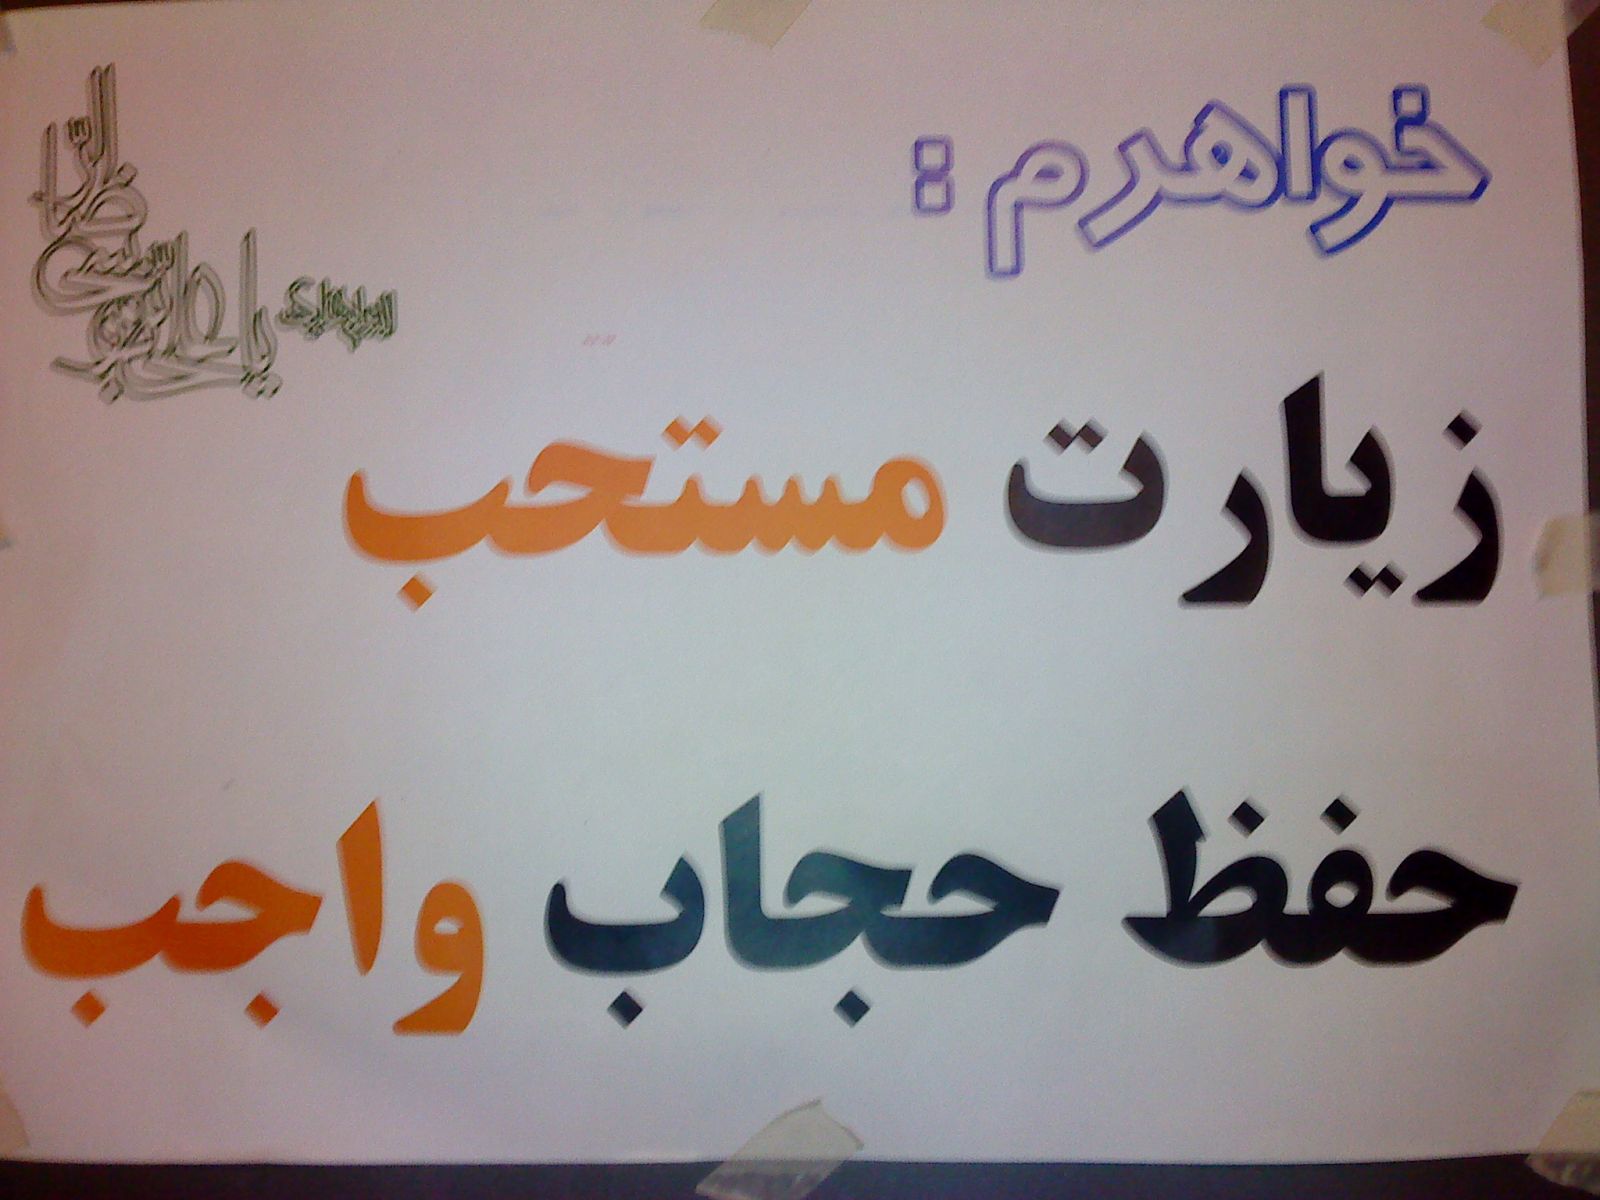 خواهرم :
زیارت مستحب
حفظ حجاب واجب